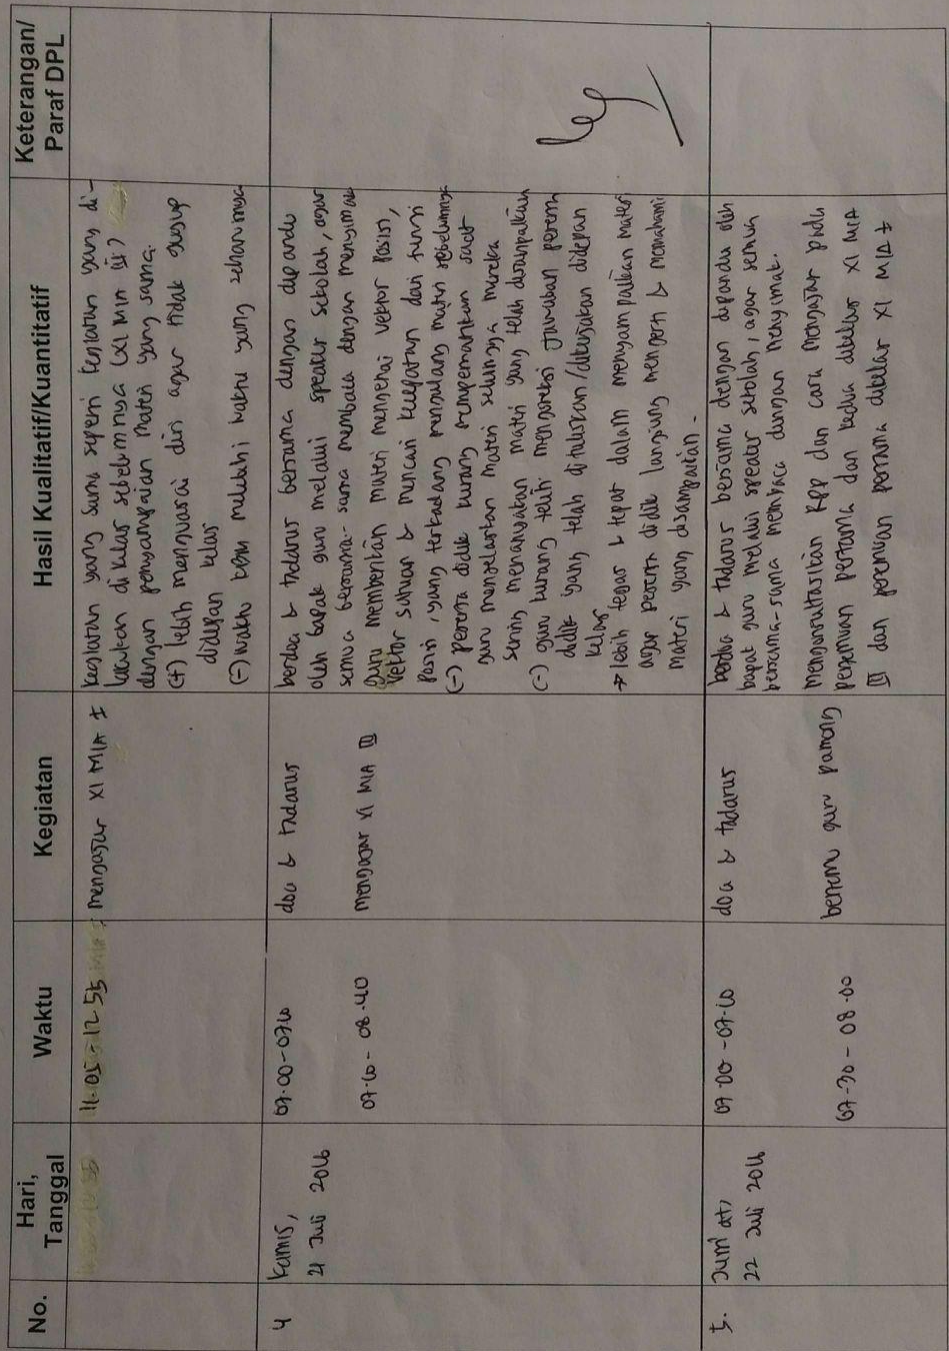 No.
Hari, Tanggal
Waktu
Kegiatan
Hasil Kualitatif/Kuantitatif
Keterangan/ Paraf DPL
11.05 - 12.55
mengajar XI MIA I
kegiatan yang sama seperti kegiatan yang di-
lakukan di kelas sebelumnya (XI MIA III)
dengan penyampaian materi yang sama.
(+) lebih menguasai diri agar tidak gugup
didepan kelas
(-) waktu KBM melebihi waktu yang seharusnya
4
Kamis,
21 Juli 2016
07.00-07.10
doa & tadarus
berdoa & tadarus bersama dengan dipandu
oleh bapak guru melalui speaker sekolah, agar
semua bersama-sama membaca dengan menyimak
07.10 - 08.40
mengajar XI MIA III
guru memberikan materi mengenai vektor posisi,
vektor satuan & mencari kecepatan dari fungsi
posisi, yang terkadang mengulang materi sebelumnya
(-) peserta didik kurang memperhatikan saat
guru menjelaskan materi sehingga mereka
sering menanyakan materi yang telah disampaikan
(-) guru kurang teliti mengoreksi jawaban peserta
didik yang telah dituliskan/dikerjakan didepan
kelas
→ lebih tegas & tepat dalam menyampaikan materi
agar peserta didik langsung mengerti & memahami
materi yang disampaikan.
5.
Jum'at,
22 Juli 2016
07.00 -07.10
doa & tadarus
berdoa & tadarus bersama dengan dipandu oleh
bapak guru melalui speaker sekolah, agar semua
bersama-sama membaca dengan menyimak.
07.30 - 08.00
bertemu guru pamong
mengonsultasikan RPP dan cara mengajar pada
pertemuan pertama dan kedua dikelas XI MIA
III dan pertemuan pertama dikelas XI MIA I